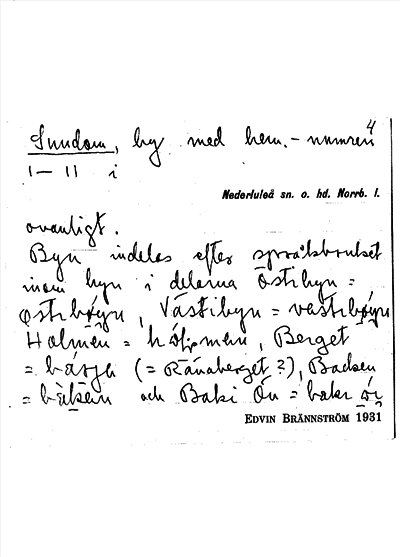 4
Sundom, by med hem.-numren
1–11 i
Nederluleå sn. o. hd. Norrb. l.
ovanligt.
Byn indelas efter språkbruket
inom byn i delarna Östibyn =
östibøyn, Västibyn = västibøyn
Holmen = hólmen, Berget
= bárje (= Rånaberget?), Backen
= och Baki Ön = bakr
EDVIN BRÄNNSTRÖM 1931